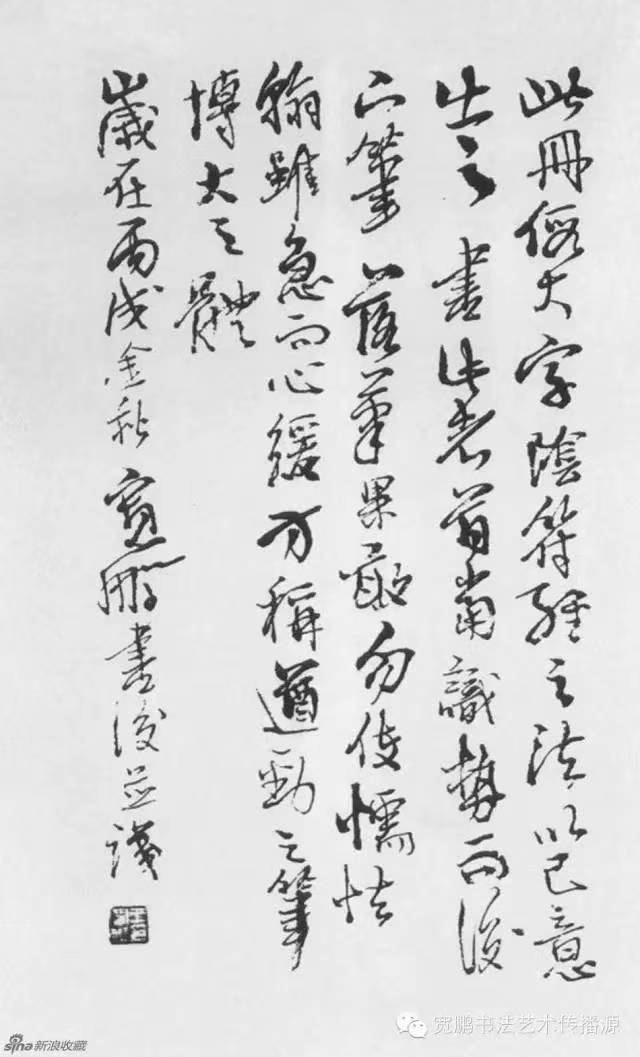 此冊假大字陰符經之法以己意
出之書此者首當識勢而後
下筆落筆果敢勿使懦怯
翰雖急而心緩方稱遒勁之筆
博大之體
歲在丙戌金秋寬鵬書後並識
宽鹏书法艺术传播源
sina新浪收藏